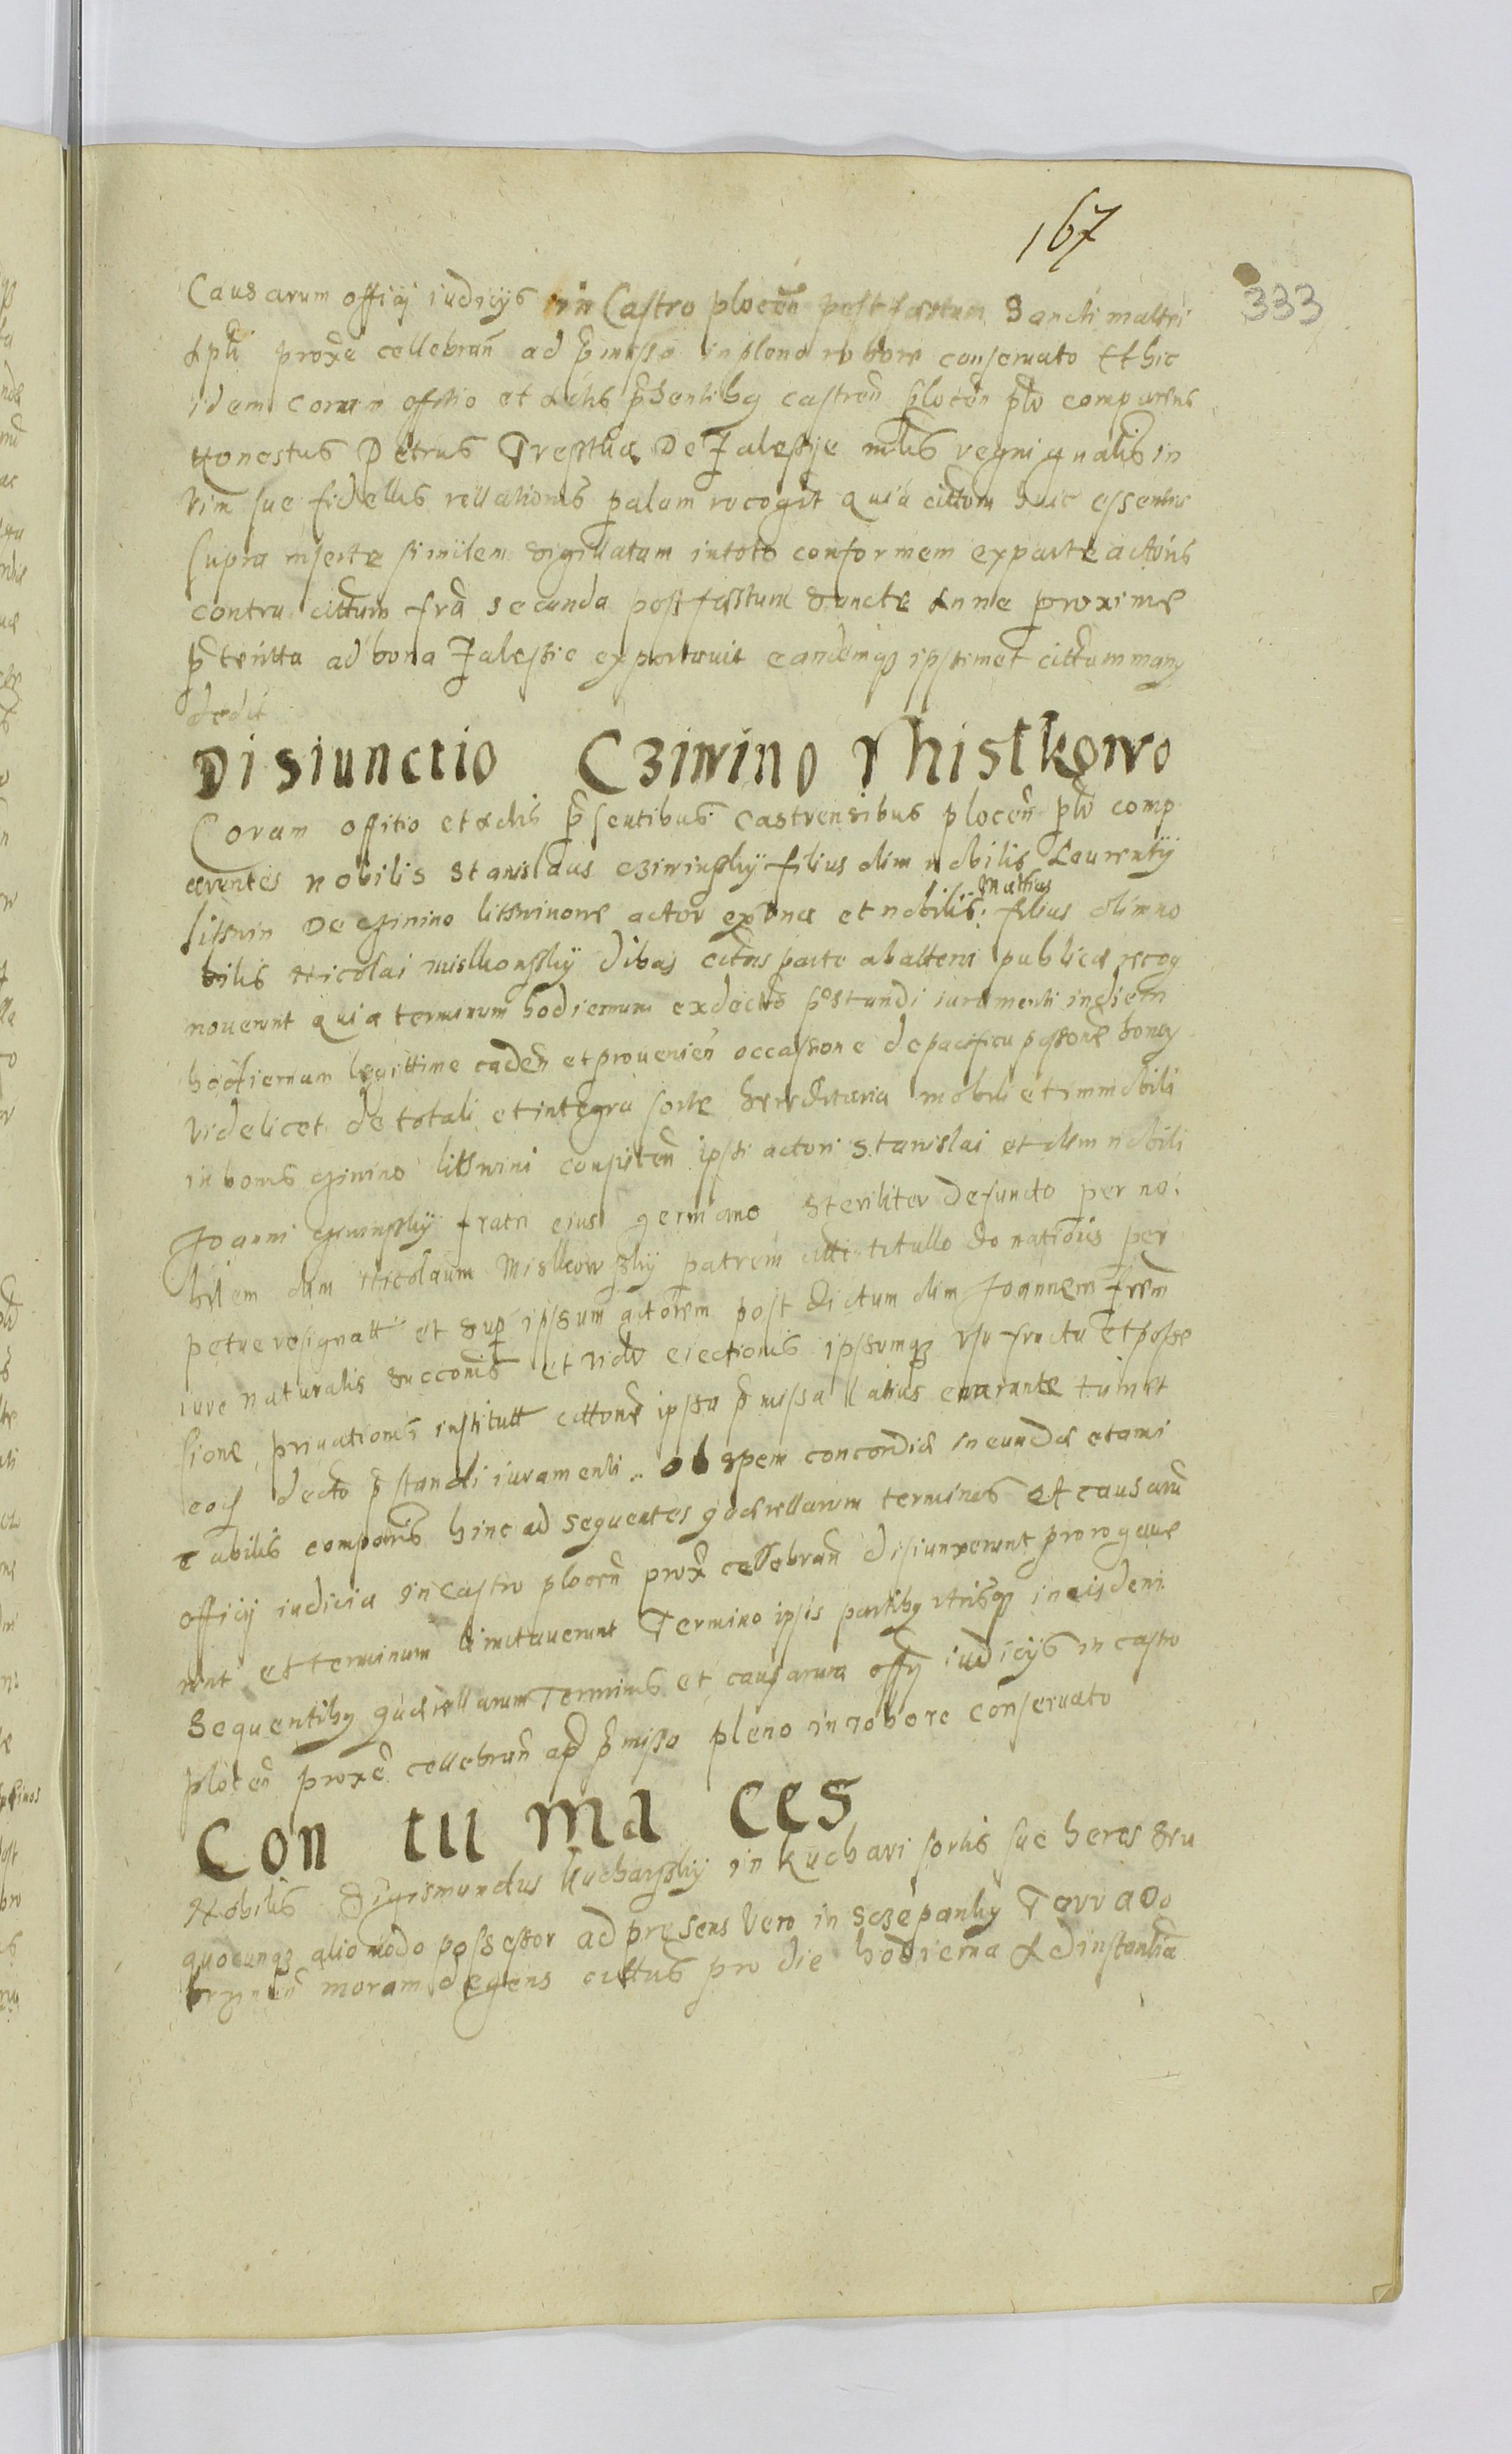 167
333
Causarum officij iudicijs in Castro plocen̄ post festum Sancti mathei
Apli proxe cellebran̄ ad p̄missa in pleno robore conseruato Et hic
idem coram offitio et Actis p̄sentibq castren̄ plocen̄ plr comparens
Honestus Petrus De Zalessye mlis regni gnalis in
vim sue fidellis rellationis palam recogit quia cittom huic essentia
supra inserte similem sigillatam in toto conformem ex parte actoris
contra cittum fra secunda post festum Sancte Anne proxime
p̄teritta ad bona Zalessie exportauit eandemqz ipsimet cittum manq
dedit
Disiunctio Cziwino Mistkowo
Coram offitio et Actis p̄sentibus Castrensibus plocen̄ plr comp
arentes nobilis Stanislaus cziwinsky filius olim nobilis Laurentij
litswin De cziwino litswinowe actor ex una et nobilis Mattias filius olim no
bilis Nicolai mistkowsky cittus parte ab altera publice recog
nouerunt quia terminum hodiernum ex decto p̄standi iuramenti in diem
hodiernum legittime caden̄ et prouenien̄ occasione de pacifica possone bonoq
videlicet de totali et integra sorte hereditaria mobili et immobili
in bonis cziwino litswini conpiten̄ ipsi actori Stanislai et olim nobili
Joanni cziwinsky fratri eius germano steriliter defuncto per no
bilem olim Nicolaum Mistkowsky patrem citti titullo donationis per
petue resignatt et sup̄ ipsum actorem post dictum olim Joannem frem̄
iure naturalis succonis et vidr eiectionis ipsumqz usu fructu et posse
sione priuationis institutt cittone ipsa p̄missa latius enarante
decto p̄standi iuramenti ob spem concordie ineunde et ami
cabilis componis hinc ad sequentes querellarum terminos et causarū
officij iudicia in Castro plocen̄ prox̄ cellebran̄ disiunxerunt prorogaue
runt et terminum limitauerunt Termino ipsis partibq utrisqz in eisdem
Sequentibq querellarum Terminis et causarum offij iudicijs in castro
plocen̄ proxe cellebran̄ ad p̄missa pleno in robore conseruato
Con tu ma ces
Nobilis Sigismundus kucharsky in kuchari sortis sue heres seu
quocunqz alio modo possessor ad presens vero in sczepanky Terra Do
brzinen̄ moram degens cittus pro die hodierna Ad instantia